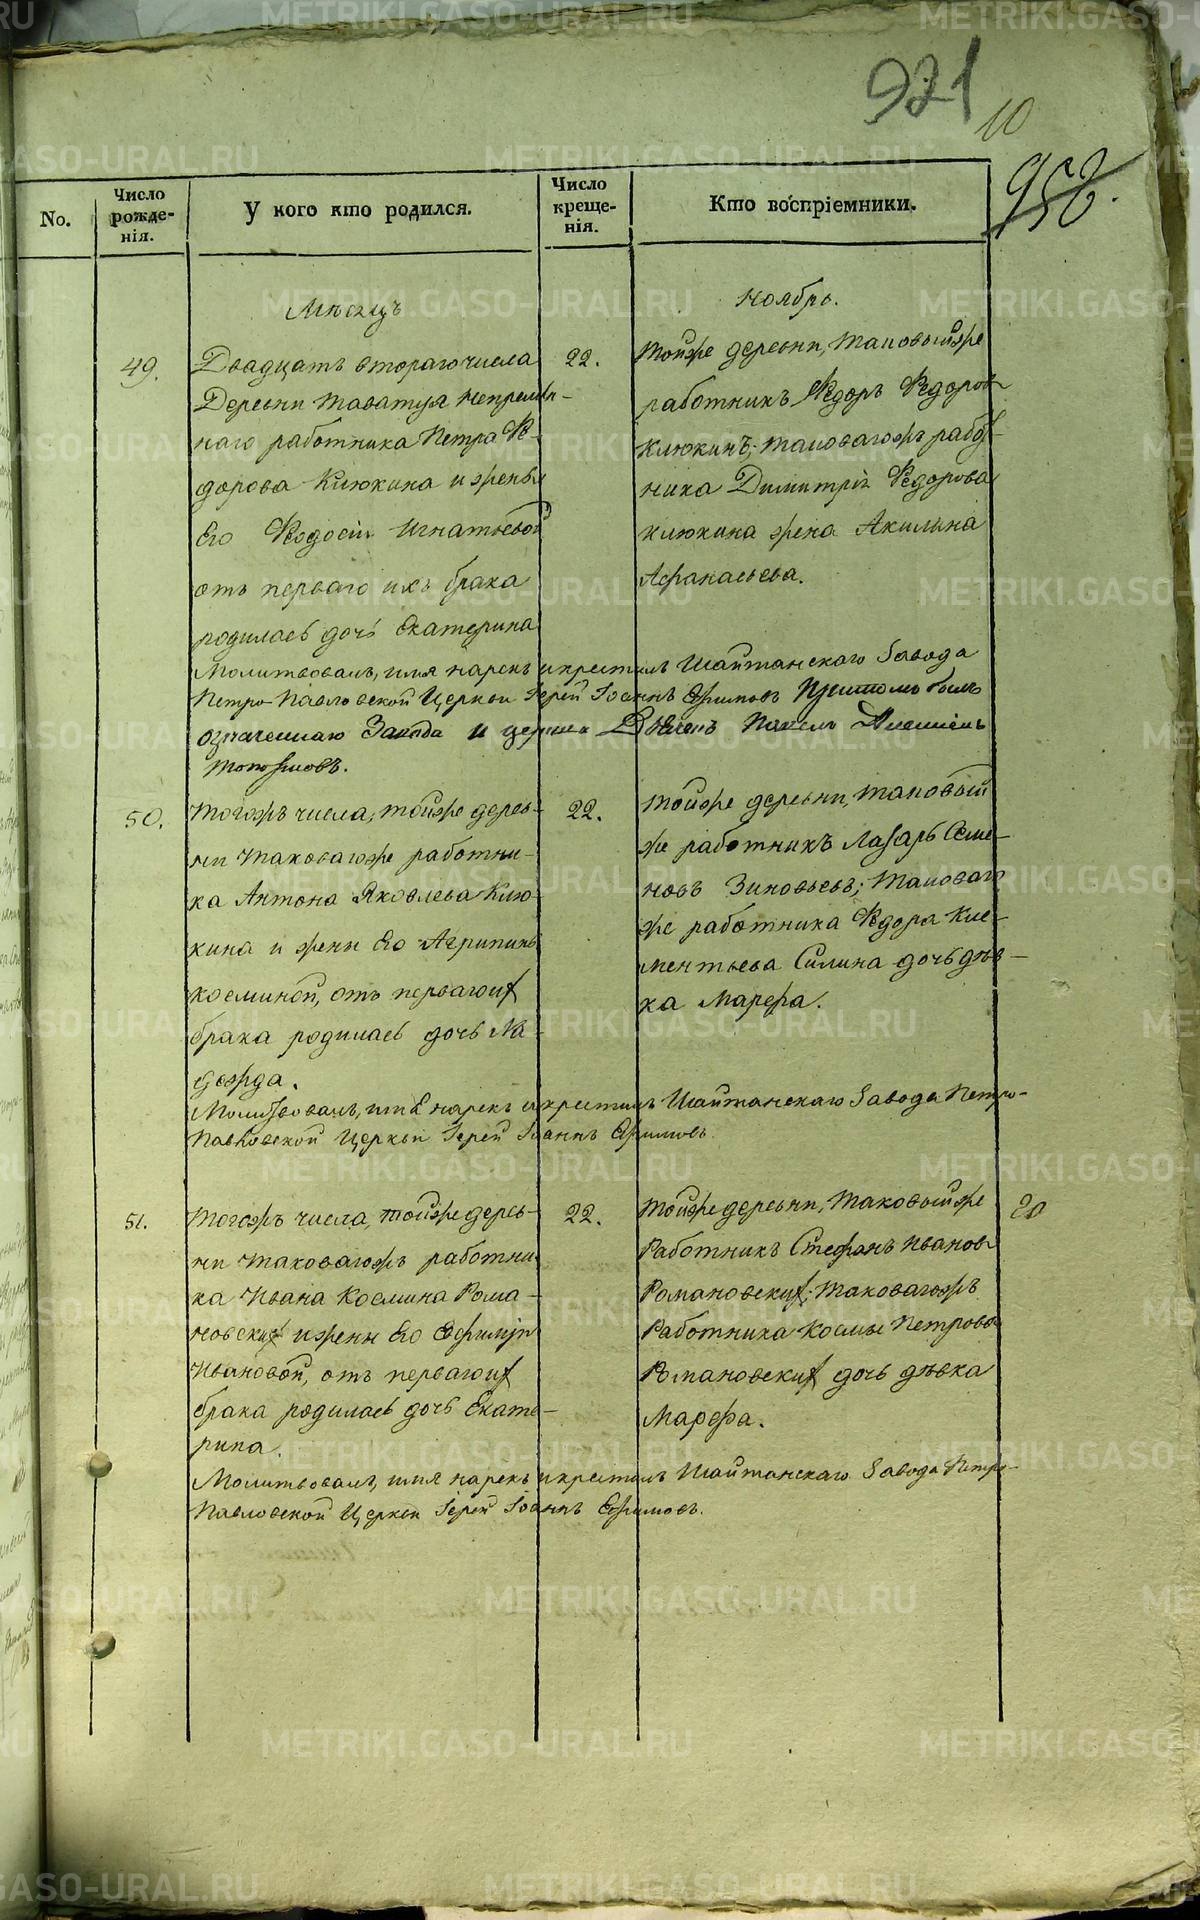 921
10
952.
No.
Число рожде-нія.
У кого кто родился.
Число креще-нія.
Кто воспріемники.
Мѣсяцъ
Ноябрь.
49.
Двадцать втораго числа
Деревни Таватуя непремѣн-
наго работника Петра Ѳе-
дорова Клюкина и жены
Его Ѳеодосіи Игнатьевой
отъ перваго ихъ брака
родилась дочь Екатерина
22.
Тойже деревни, таковыйже
работникъ Ѳедоръ Ѳедоров
Клюкинъ; таковагожъ работ-
ника Димитрія Ѳедорова
Клюкина жена Акилина
Афанасьева.
Молитвовалъ, имя нарекъ и крестилъ Шайтанскаго Завода
Петро-Павловской Церкви Іерей Іоаннъ Ефимовъ При томъ былъ
означеннаго Завода и церкви Павелъ
50.
Тогожъ числа, тойже дерев-
ни таковагоже работни-
ка Антона Яковлева Клю-
кина и жены Его Агрипины
Косминой, отъ перваго их
брака родилась дочь На-
дежда.
22.
Тойже деревни, таковый
же работникъ Лазарь Семе-
новъ Зиновьевъ; таковаго
же работника Ѳедора Кле-
ментьева Силина дочь дѣв-
ка Марѳа.
Молитвовалъ, имя нарекъ и крестилъ Шайтанскаго Завода Петро-
Павловской Церкви Іерей Іоаннъ Ефимовъ.
51.
Тогожъ числа, тойже дерев-
ни таковагожъ работни-
ка Ивана Космина Рома-
новских и жены Его Евфиміи
Ивановой, отъ перваго их
брака родилась дочь Екате-
рина.
22.
Тойже деревни, таковыйже
Работникъ Стефанъ Иванов
Романовских; таковагожъ
Работника Космы Петрова
Романовских дочь дѣвка
Марѳа.
20
Молитвовалъ, имя нарекъ и крестилъ Шайтанскаго Завода Петро-
Павловской Церкви Іерей Іоаннъ Ефимовъ.